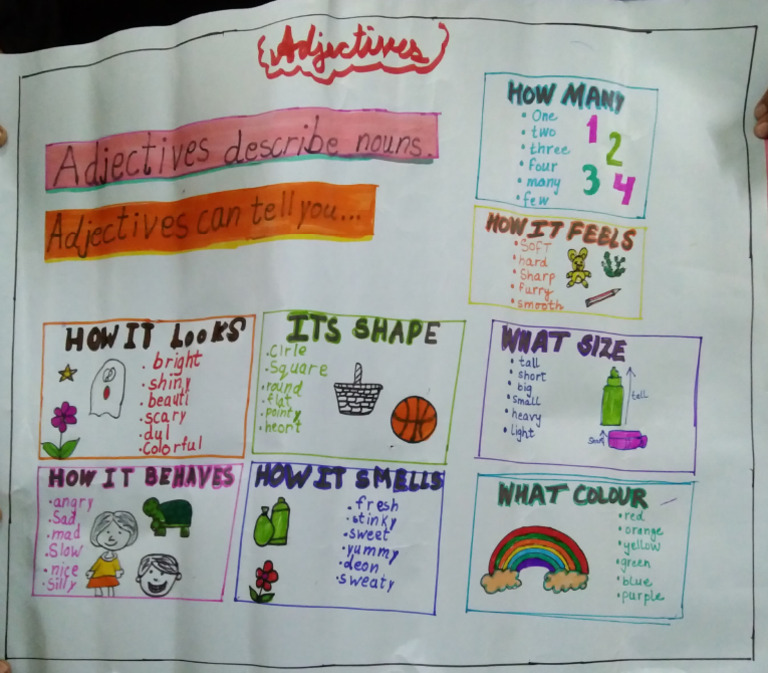 Adjectives
Adjectives describe nouns.
Adjectives can tell you...
HOW MANY
• One
• two
• three
• four
• many
• few
1
2
3
4
HOW IT FEELS
• SOFT
• hard
• Sharp
• Furry
• smooth
HOW IT LOOKS
• bright
• shiny
• beauti
• scary
• dul
• Colorful
ITS SHAPE
• Cirle
• Square
• round
• flat
• pointy
• heort
WHAT SIZE
• tall
• short
• big
• small
• heavy
• light
tell
HOW IT BEHAVES
• angry
• Sad
• mad
• Slow
• nice
• Silly
HOW IT SMELLS
• fresh
• stinky
• sweet
• yummy
• deon
• sweaty
WHAT COLOUR
• red
• orange
• yellow
• green
• blue
• purple